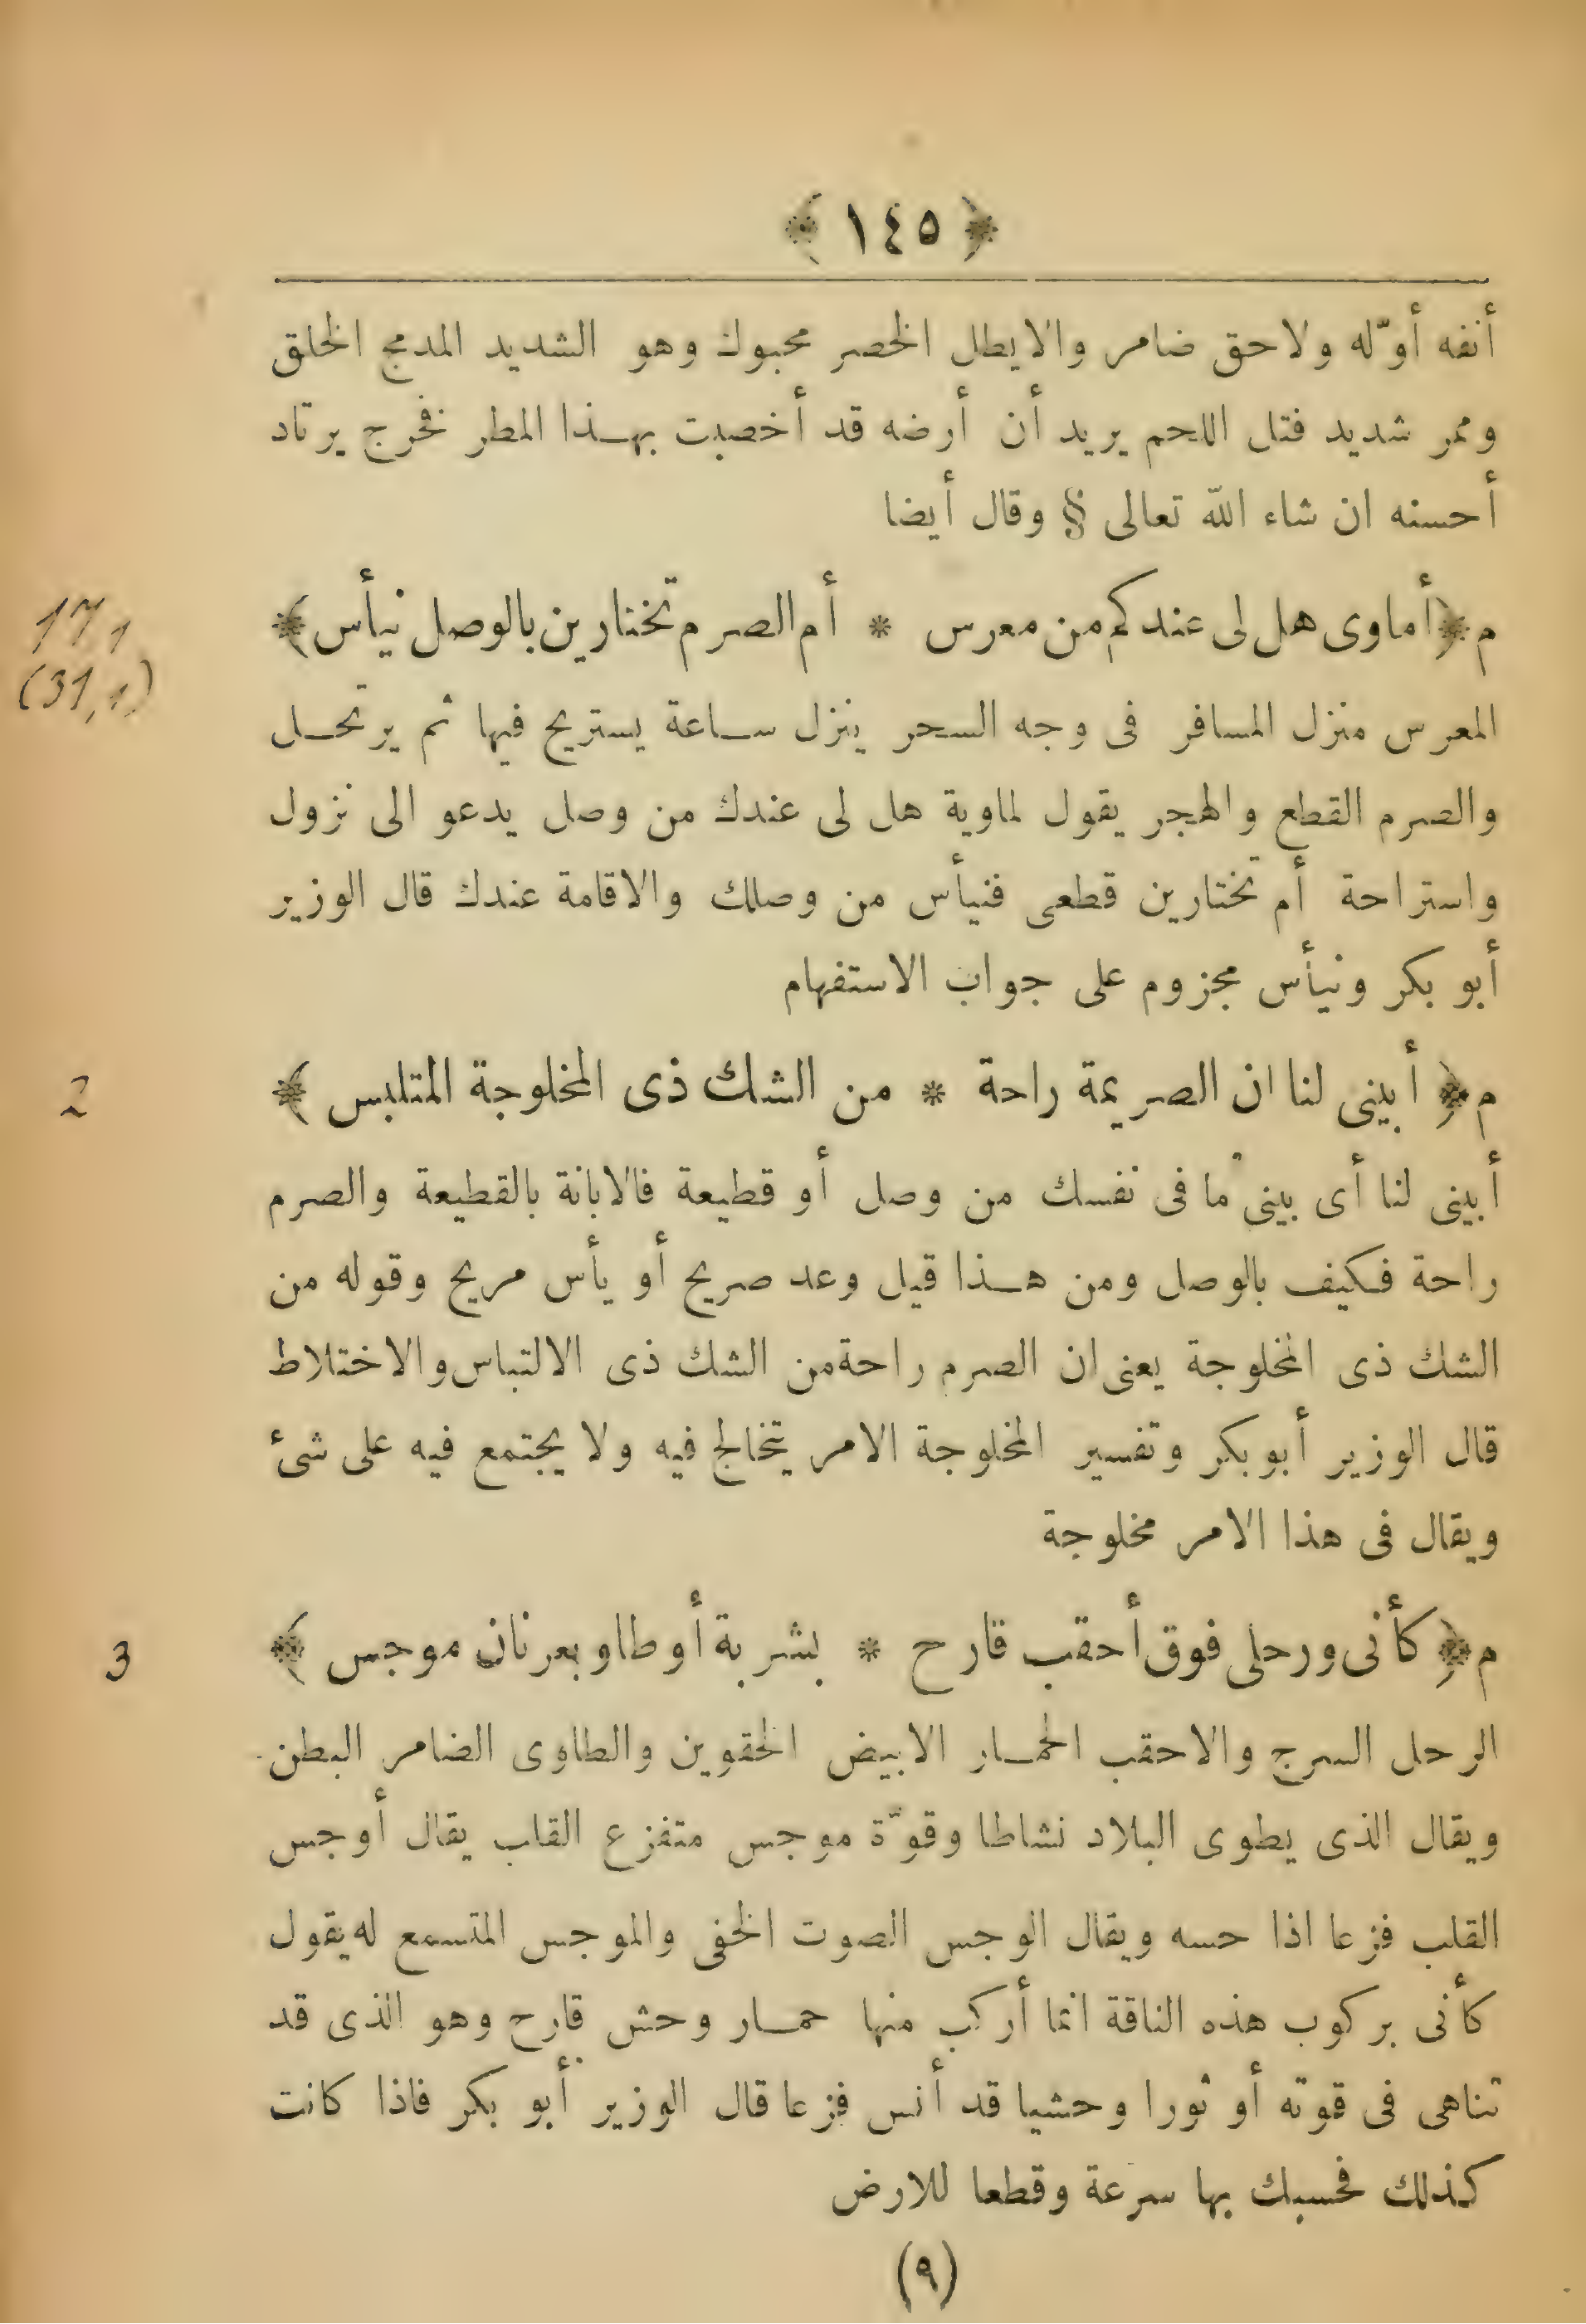 ﴿ ١٤٥ ﴾
أنفه أوّله ولاحق ضامر والايطل الخصر محبوك وهو الشديد المدمج الخلق
وممر شديد فتل اللحم يريد أن أرضه قد أخصبت بهذا المطر فخرج يرتاد
أحسنه ان شاء الله تعالى § وقال أيضا
م ﴿ أماوى هل لى عندكم من معرس * أم الصرم تختارين بالوصل نيأس ﴾
171
(31,1)
المعرس منزل المسافر فى وجه السحر ينزل ساعة يستريح فيها ثم يرتحل
والصرم القطع والهجر يقول لماوية هل لى عندك من وصل يدعو الى نزول
واستراحة أم تختارين قطعى فنيأس من وصلك والاقامة عندك قال الوزير
أبو بكر ونيأس مجزوم على جواب الاستفهام
م ﴿ أبينى لنا ان الصريمة راحة * من الشك ذى المخلوجة المتلبس ﴾
2
أبينى لنا أى بينى ما فى نفسك من وصل أو قطيعة فالابانة بالقطيعة والصرم
راحة فكيف بالوصل ومن هذا قيل وعد صريح أو يأس مريح وقوله من
الشك ذى المخلوجة يعنى ان الصرم راحة من الشك ذى الالتباس والاختلاط
قال الوزير أبو بكر وتفسير المخلوجة الامر يتخالج فيه ولا يجتمع فيه على شئ
ويقال فى هذا الامر مخلوجة
م ﴿ كأنى ورحلى فوق أحقب قارح * بشربة أو طاو بعرنان موجس ﴾
3
الرحل السرج والاحقب الحمار الابيض الحقوين والطاوى الضامر البطن
ويقال الذى يطوى البلاد نشاطا وقوّة موجس متفزع القلب يقال أوجس
القلب فزعا اذا حسه ويقال الوجس الصوت الخفى والموجس المتسمع له يقول
كأنى بركوب هذه الناقة انما أركب منها حمار وحش قارح وهو الذى قد
تناهى فى قوته أو ثورا وحشيا قد أنس فزعا قال الوزير أبو بكر فاذا كانت
كذلك فحسبك بها سرعة وقطعا للارض
(٩)